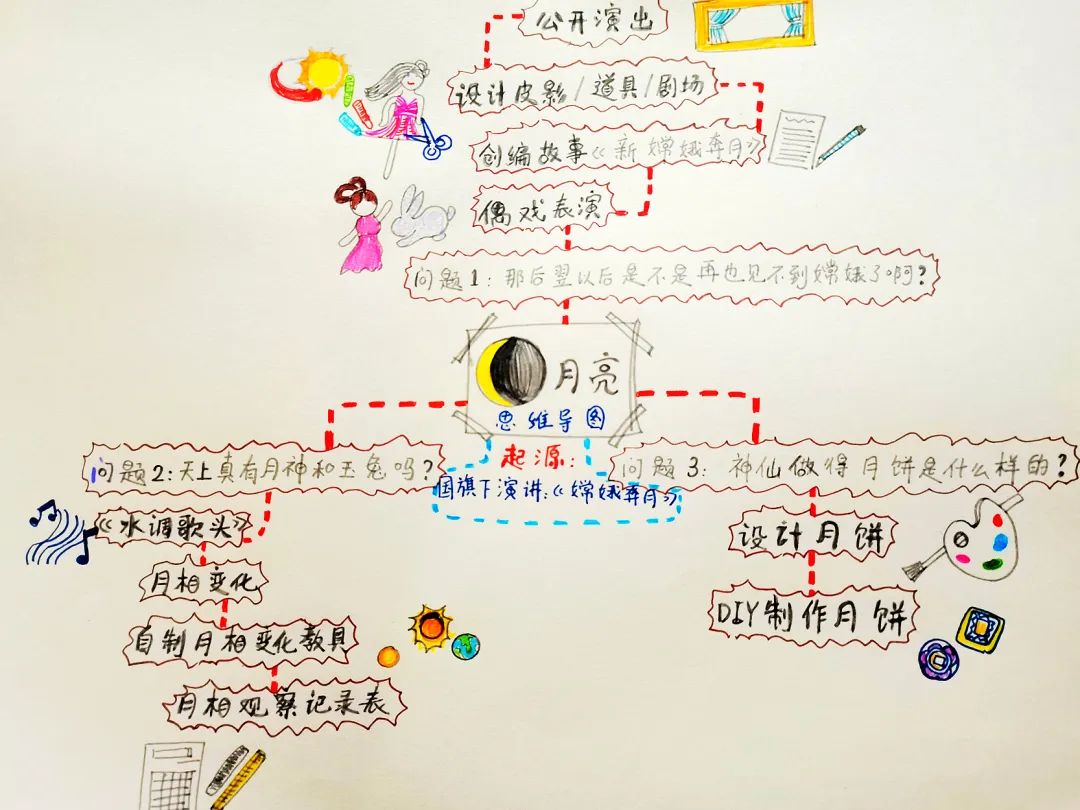 公开演出
设计皮影/道具/剧场
创编故事《新嫦娥奔月》
偶戏表演
问题1:那后翌以后是不是再也见不到嫦娥了啊?
月亮
思维导图
起源:
国旗下演讲:《嫦娥奔月》
问题2:天上真有月神和玉兔吗?
《水调歌头》
月相变化
自制月相变化教具
月相观察记录表
问题3:神仙做得月饼是什么样的?
设计月饼
DIY制作月饼